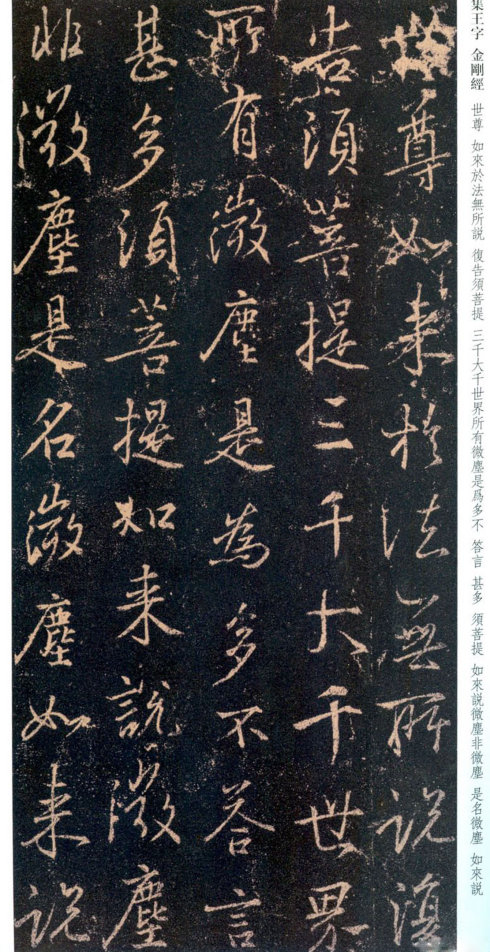 集王字 金剛經 世尊 如來於法無所説 復告須菩提 三千大千世界所有微塵是爲多不 答言 甚多 須菩提 如來説微塵非微塵 是名微塵 如來説
世尊如来於法無所説復
告須菩提三千大千世界
所有微塵是為多不答言
甚多須菩提如来說微塵
非微塵是名微塵如来説